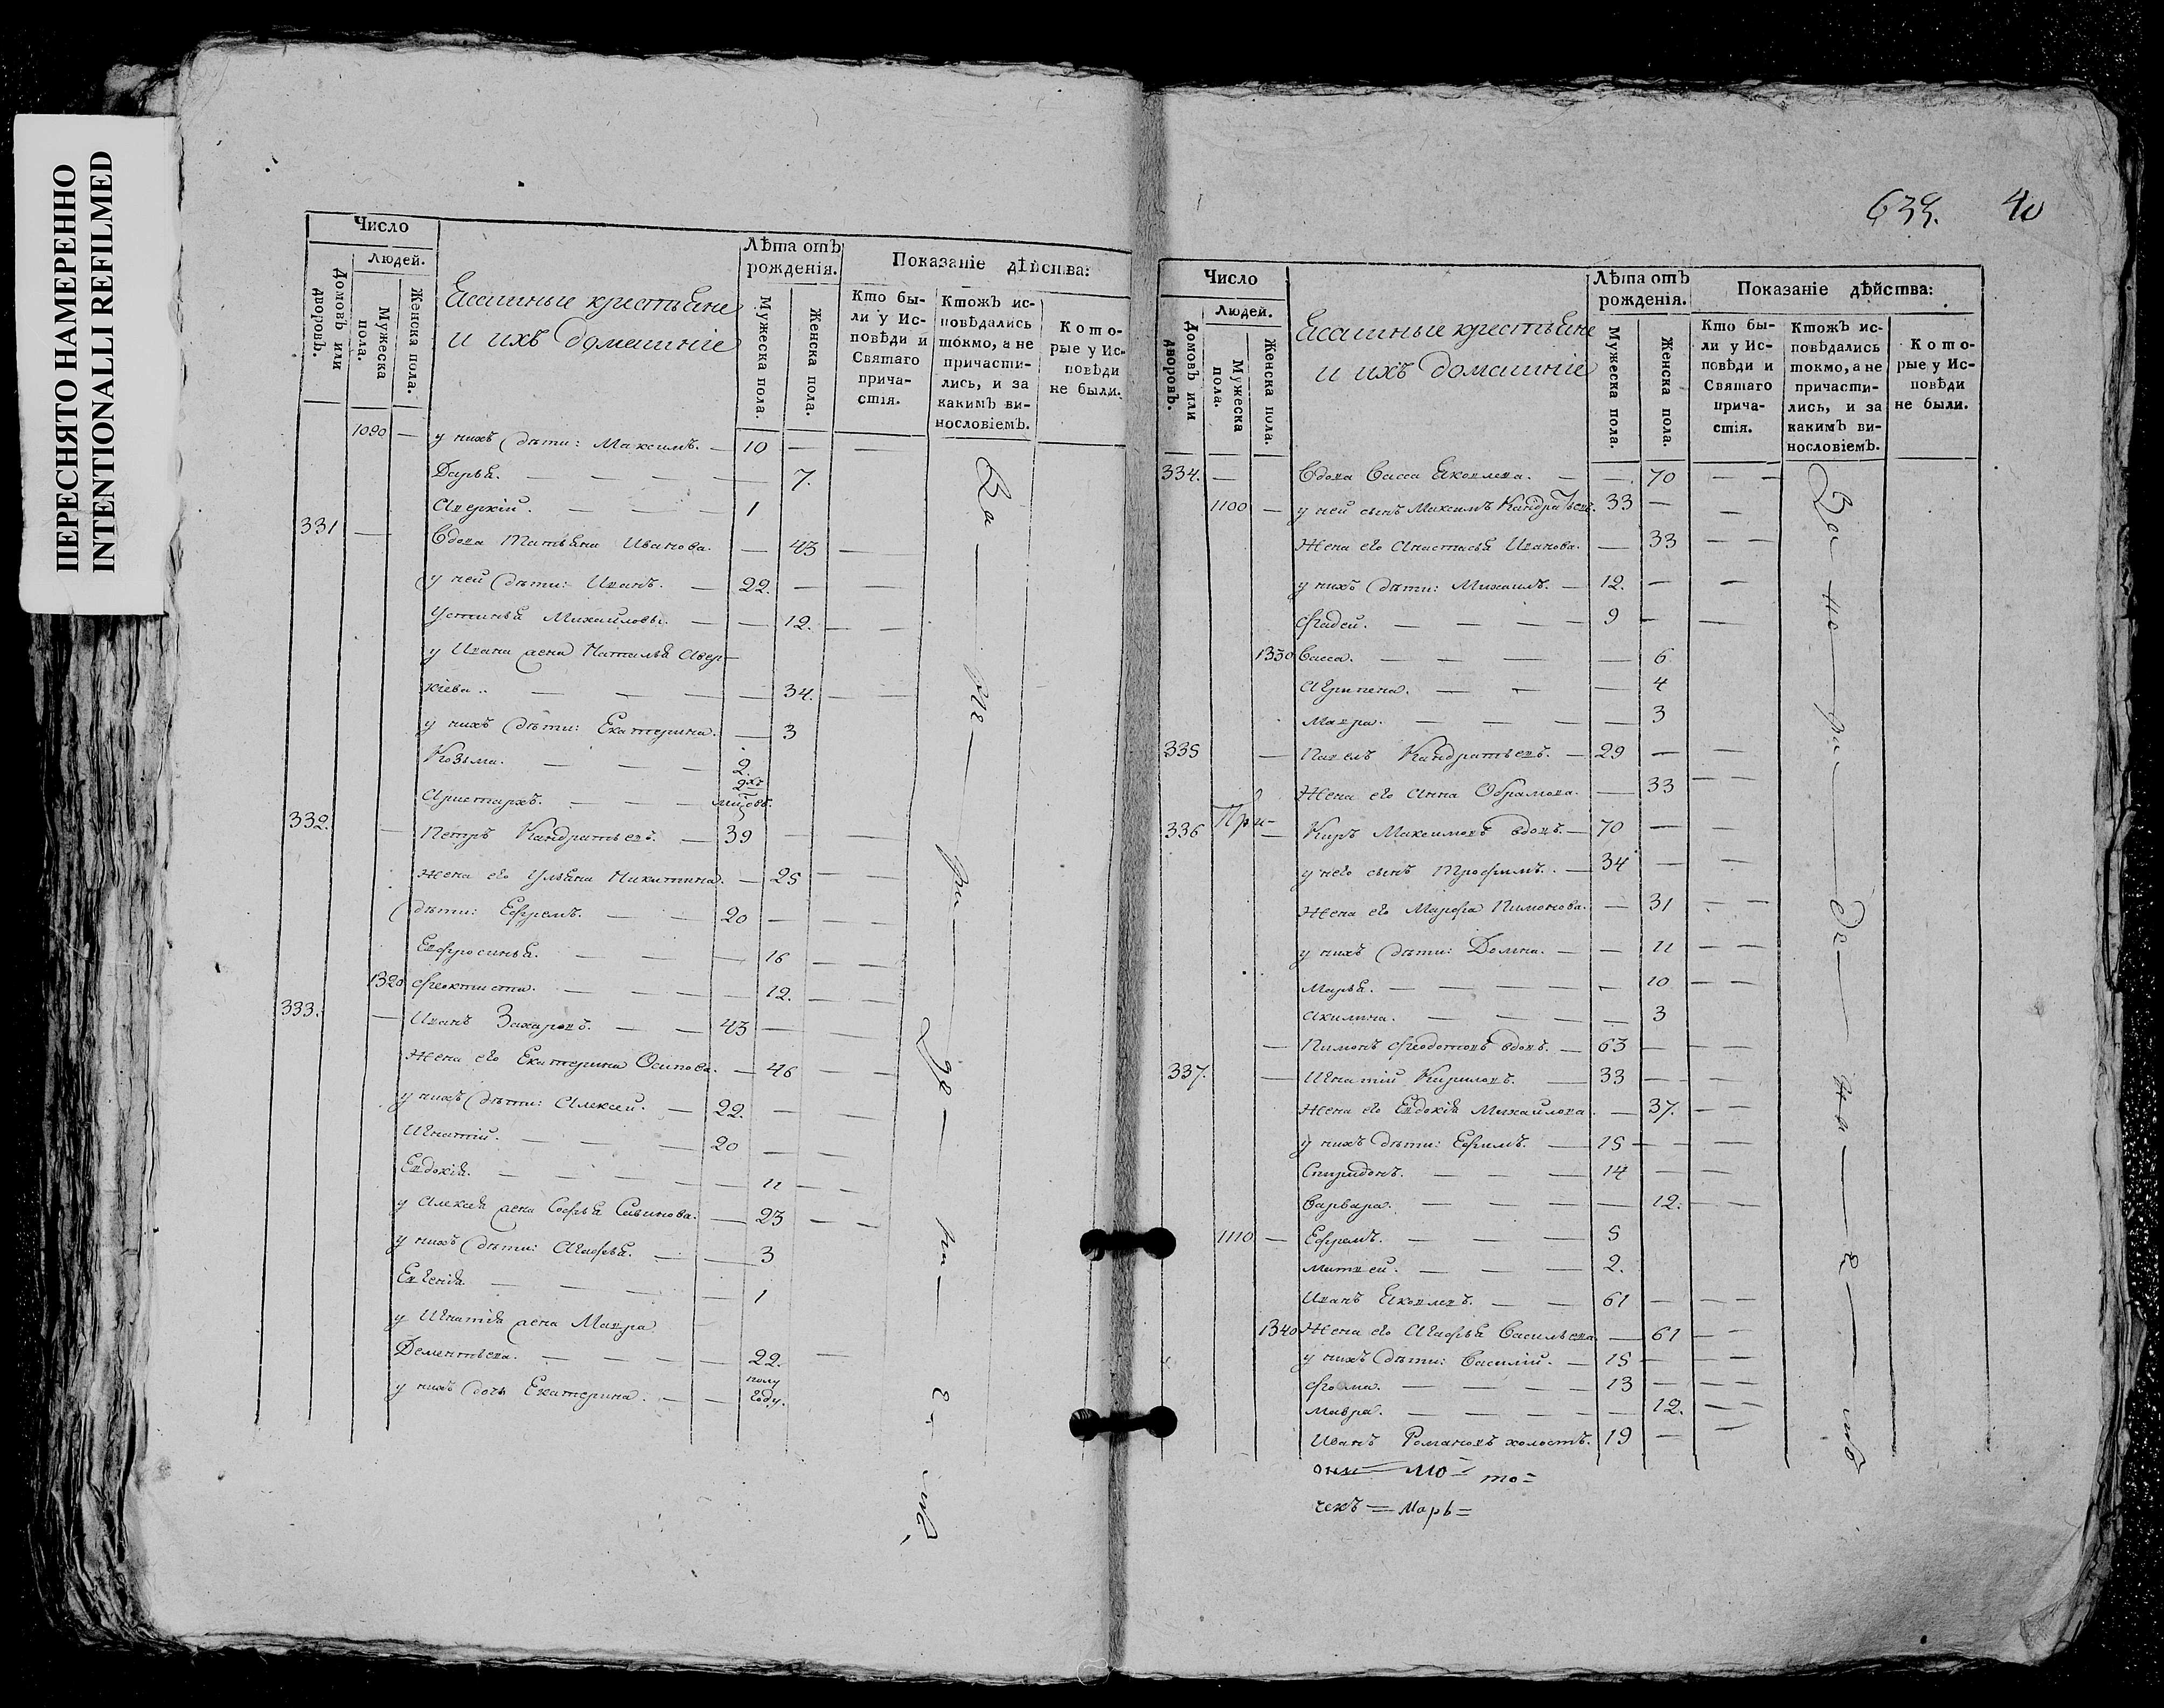 ПЕРЕСНЯТО НАМЕРЕННО
INTENTIONALLI REFILMED
Число
Людей.
Домовъ или дворовъ.
Мужеска пола.
Женска пола.
Ясашные крестьяне
и ихъ домашніе
Лѣта отъ
рожденія.
Мужеска пола.
Женска пола.
Показаніе дѣйства:
Кто бы-
ли у Ис-
повѣди и
Святаго
прича-
стія.
Ктожъ ис-
повѣдались
токмо, а не
причасти-
лись, и за
какимъ ви-
нословіемъ.
Кото-
рые у Ис-
повѣди
не были.
1090 — у нихъ дѣти: Максимъ. — 10 — —
Дарья. — — — — 7.
Аверкій. — — — 1
331 — Вдова Татьяна Иванова. — 43 —
у ней дѣти: Иванъ. — 22. — —
Устинья Михайловы. — — 12. — —
у Ивана жена Наталья Авер-
кіева.. — — — — 34. — —
у нихъ дѣти: Екатерина. — 3
Козьма. — — — 2.
Аристархъ. — — — 2хъ мцовъ.
332. — Петръ Кандратьевъ. — 39 — —
Жена его Ульяна Никитина. — 25 — —
дѣти: Ефремъ. — — 20 — —
Евфросинья. — — — — 16 — —
1320 Феоктиста. — — — — 12. — —
333. — Иванъ Захаровъ. — — 43 — —
Жена его Екатерина Осипова. — 46 — —
у нихъ дѣти: Алексей. — 22. — —
Игнатій. — — — — 20 — —
Евдокія. — — — — — 11 — —
у Алексея жена Софья Савинова. — 23 — —
у нихъ дѣти: Агафья. — — 3
Евгенія — — — — — 1
у Игнатія жена Мавра
Дементьева. — — — — 22. —
у нихъ дочь Екатерина. — — полу году.
639. 40
Число
Людей.
Домовъ или дворовъ.
Мужеска пола.
Женска пола.
Ясашные крестьяне
и ихъ домашніе
Лѣта отъ
рожденія.
Мужеска пола.
Женска пола.
Показаніе дѣйства:
Кто бы-
ли у Ис-
повѣди и
Святаго
прича-
стія.
Ктожъ ис-
повѣдались
токмо, а не
причасти-
лись, и за
какимъ ви-
нословіемъ.
Кото-
рые у Ис-
повѣди
не были.
334. — Вдова Васса Яковлева. — — 70 — —
1100 — у ней сынъ Максимъ Кандратьевъ. 33 — —
Жена его Анастасья Иванова. — 33 — —
у нихъ дѣти: Михаилъ. — 12. — —
Фадей. — — — — 9 — —
1330 Васса. — — — — 6
Агрипена. — — — 4
Мавра. — — — — 3
335 — Павелъ Кандратьевъ. — 29 — —
Жена его Анна Обрамова. — 33 — —
При-
336 — Киръ Максимовъ вдовъ. — 70 — —
у него сынъ Трофимъ. — 34 — —
Жена его Марфа Пимонова. — 31 — —
у нихъ дѣти: Домна. — — 11 — —
Марья. — — — — — 10 — —
Акилина. — — — — 3
— Пимонъ Феодотовъ вдовъ. — 63 — —
337. — Игнатій Кириловъ. — 33 — —
Жена его Евдокія Михайлова. — 37. — —
у нихъ дѣти: Ефимъ. — 15 — — —
Спиридонъ. — — — 14 — —
Варвара. — — — — 12. — —
1110 — Ефремъ. — — — 5
Матвей. — — — 2.
Иванъ Яковлевъ. — — 61 — — —
1340 Жена его Агафья Васильева — 61 — —
у нихъ дѣти: Василій. — 15 — — —
Фома. — — — — 13 — — —
Мавра. — — — — — 12. — —
Иванъ Романовъ холостъ. 19 — —